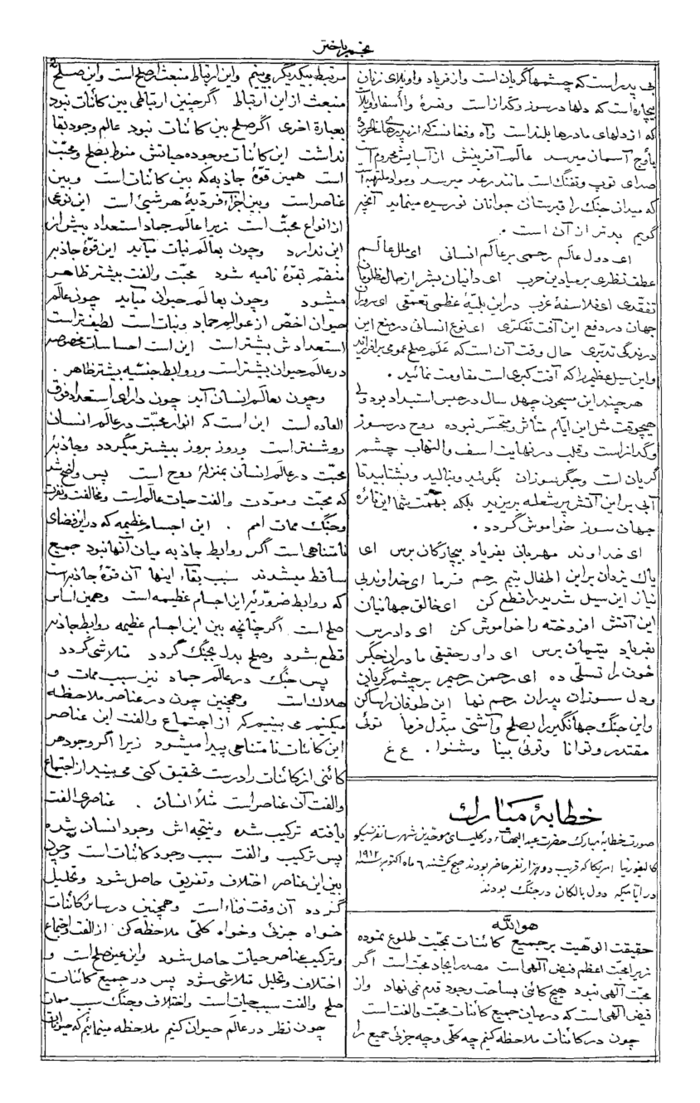 نجم باختر
بی پدر است که چشمها گریان است و از فریاد و اویلای زنان
بیچاره است که دلها در سوز و گداز است و نعره وا أسفا و اویلا
که از دلهای مادرها بلند است و آه و فغانست که از پیرهای
باوج آسمان میرسد عالم آفرینش از آسایش محروم
صدای توپ و تفنگ است مانند رعد میرسد و مواد ملتهبه
که میدان جنگ را قبرستان جوانان نورسیده مینماید آنچه
گویم بدتر از آن است .
ای دول عالم رحمی بر عالم انسانی ای ملل عالم
عطف نظری بر میادین حرب ای دانایان بشر از حال مظلومان
تفقدی ای فلاسفهٔ غرب در این بلیهٔ عظمی تعمقی ای سروران
جهان در دفع این آفت تفکری ای نوع انسانی در منع این
درندگی تدبری حال وقت آن است که علم صلح عمومی برافرازید
و این سیل عظیم را که آفت کبری است مقاومت نمائید .
هر چند این مسجون چهل سال در حبس استبداد بود ولی
هیچوقت مثل این ایام متأثر و متحسر نبوده روح در سوز
و گداز است و قلب در نهایت اسف و التهاب چشم
گریان است و جگر سوزان بگوئید و بنالید و بشتابید تا
آبی بر این آتش پر شعله بریزید بلکه بهمت شما این نائرهٔ
جهان سوز خواموش گردد .
ای خداوند مهربان بفریاد بیچارگان برس ای
پاک یزدان بر این اطفال یتیم رحم فرما ای خداوند بی
نیاز این سیل شدید را قطع کن ای خالق جهانیان
این آتش افروخته را خواموش کن ای دادرس
بفریاد یتیمان برس ای داور حقیقی مادران جگر
خون را تسلی ده ای رحمن رحیم بر چشم گریان
و دل سوزان پدران رحم نما این طوفان را ساکن
و این جنگ جهانگیر را بصلح و آشتی مبدل فرما توئی
مقتدر و توانا و توئی بینا و شنوا . ع ع
خطابهٔ مبارک
صورت خطابهٔ مبارک حضرت عبد البهاء در کلیسای موحدین شهر سانفرنسیسکو
کالیفورنیا امریکا که قریب دو هزار نفر حاضر بودند صبح یکشنبه ۶ ماه اکتوبر سنه ۱۹۱۲
در ایامیکه دول بالکان در جنگ بودند
هو الله
حقیقت الوهیت بر جمیع کائنات بمحبت طلوع نموده
زیرا محبت اعظم فیض الهی است مصدر ایجاد محبت است اگر
محبت آلهی نبود هیچ کائنی بساحت وجود قدم نمی نهاد و از
فیض الهی است که در میان جمیع کائنات محبت و الفت است
چون در کائنات ملاحظه کنیم چه کلی و چه جزئی جمیع را
مرتبط بیکدیگر می بینیم و این ارتباط منبعث از صلح است و این صلح
منبعث از این ارتباط اگر چنین ارتباطی بین کائنات نبود
بعبارة اخری اگر صلح بین کائنات نبود عالم وجود بقا
نداشت این کائنات موجوده حیاتش منوط بصلح و محبت
است همین قوهٔ جاذبه که بین کائنات است و بین
عناصر است و بین اجزاء فردیهٔ هر شیئی است این نوعی
از انواع محبت است زیرا عالم جماد استعداد بیش از
این ندارد و چون بعالم نبات میآید این قوهٔ جاذبه
منضم بقوهٔ نامیه شود محبت و الفت بیشتر ظاهر
میشود و چون بعالم حیوان میآید چون عالم
حیوان اخص از عوالم جماد و نبات است لطیفتر است
استعدادش بیشتر است این است احساسات مخصوصه
در عالم حیوان بیشتر است و روابط جنسیه بیشتر ظاهر .
و چون بعالم انسان آید چون دارای استعداد فوق
العاده است این است که انوار محبت در عالم انسان
روشنتر است و روز بروز بیشتر میگردد و جاذبهٔ
محبت در عالم انسان بمنزلهٔ روح است پس واضح شد
که محبت و مودت و الفت حیات عالم است و مخالفت و نفرت
و جنگ ممات امم . این اجسام عظیمه که در این فضای
نامتناهی است اگر روابط جاذبه میان آنها نبود جمیع
ساقط میشدند سبب بقاء اینها آن قوهٔ جاذبه است
که روابط ضروریهٔ این اجسام عظیمه است و همین اساس
صلح است اگر چنانچه بین این اجسام عظیمه روابط جاذبه
قطع بشود و صلح بدل بجنگ گردد متلاشی گردد
پس جنگ در عالم جماد نیز سبب ممات و
هلاک است و همچنین چون در عناصر ملاحظه
میکنیم می بینیم که از اجتماع و الفت این عناصر
این کائنات نامتناهی پیدا میشود زیرا اگر وجود هر
کائنی از کائنات را درست تحقیق کنی می بینید از اجتماع
و الفت آن عناصر است مثلا انسان . عناصری الفت
یافته ترکیب شده و نتیجه اش وجود انسان شده
پس ترکیب و الفت سبب وجود کائنات است و چون
بین این عناصر اختلاف و تفریق حاصل شود و تحلیل
گردد آن وقت فناء است و همچنین در سائر کائنات
خواه جزئی و خواه کلی ملاحظه کن از الفت و اجتماع
و ترکیب عناصر حیات حاصل شود و این عین صلح است و
اختلاف و تحلیل متلاشی شود پس در جمیع کائنات
صلح و الفت سبب حیات است و اختلاف و جنگ سبب ممات
چون نظر در عالم حیوان کنیم ملاحظه مینمائیم که حیوانات